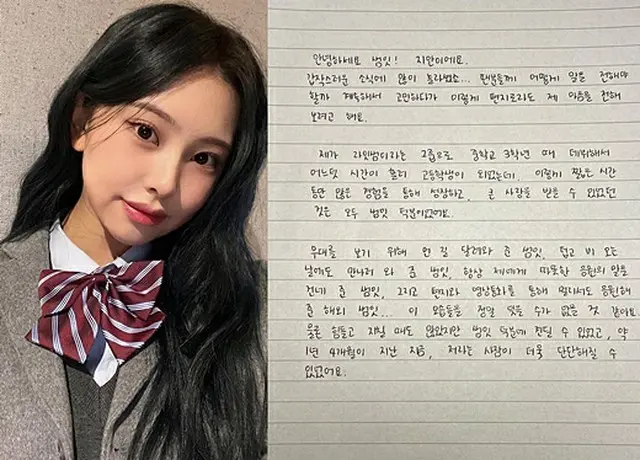 안녕하세요 범밋! 지안이에요.
갑작스러운 소식에 많이 놀라셨죠... 팬분들께 어떻게 말을 전해야
할까 계속해서 고민하다가 이렇게 편지로라도 제 마음을 전해
보려고 해요.
제가 라잇썸이라는 그룹으로 중학교 3학년 때 데뷔해서
어느덧 시간이 흘러 고등학생이 되었는데, 이렇게 짧은 시간
동안 많은 경험을 통해 성장하고, 큰 사랑을 받을 수 있었던
것은 모두 범밋 덕분이었어요.
무대를 보기 위해 먼 길 달려와 준 범밋, 덥고 비 오는
날에도 만나러 와 준 범밋, 항상 제에게 따뜻한 응원의 말을
건네 준 범밋, 그리고 편지와 영상통화를 통해 멀리서도 응원해
준 해외 범밋... 이 모습들을 정말 잊을 수가 없을 것 같아요.
물론 힘들고 지칠 때도 있었지만 범밋 덕분에 견딜 수 있었고, 약
1년 4개월이 지난 지금, 저라는 사람이 더욱 단단해질 수
있었어요.